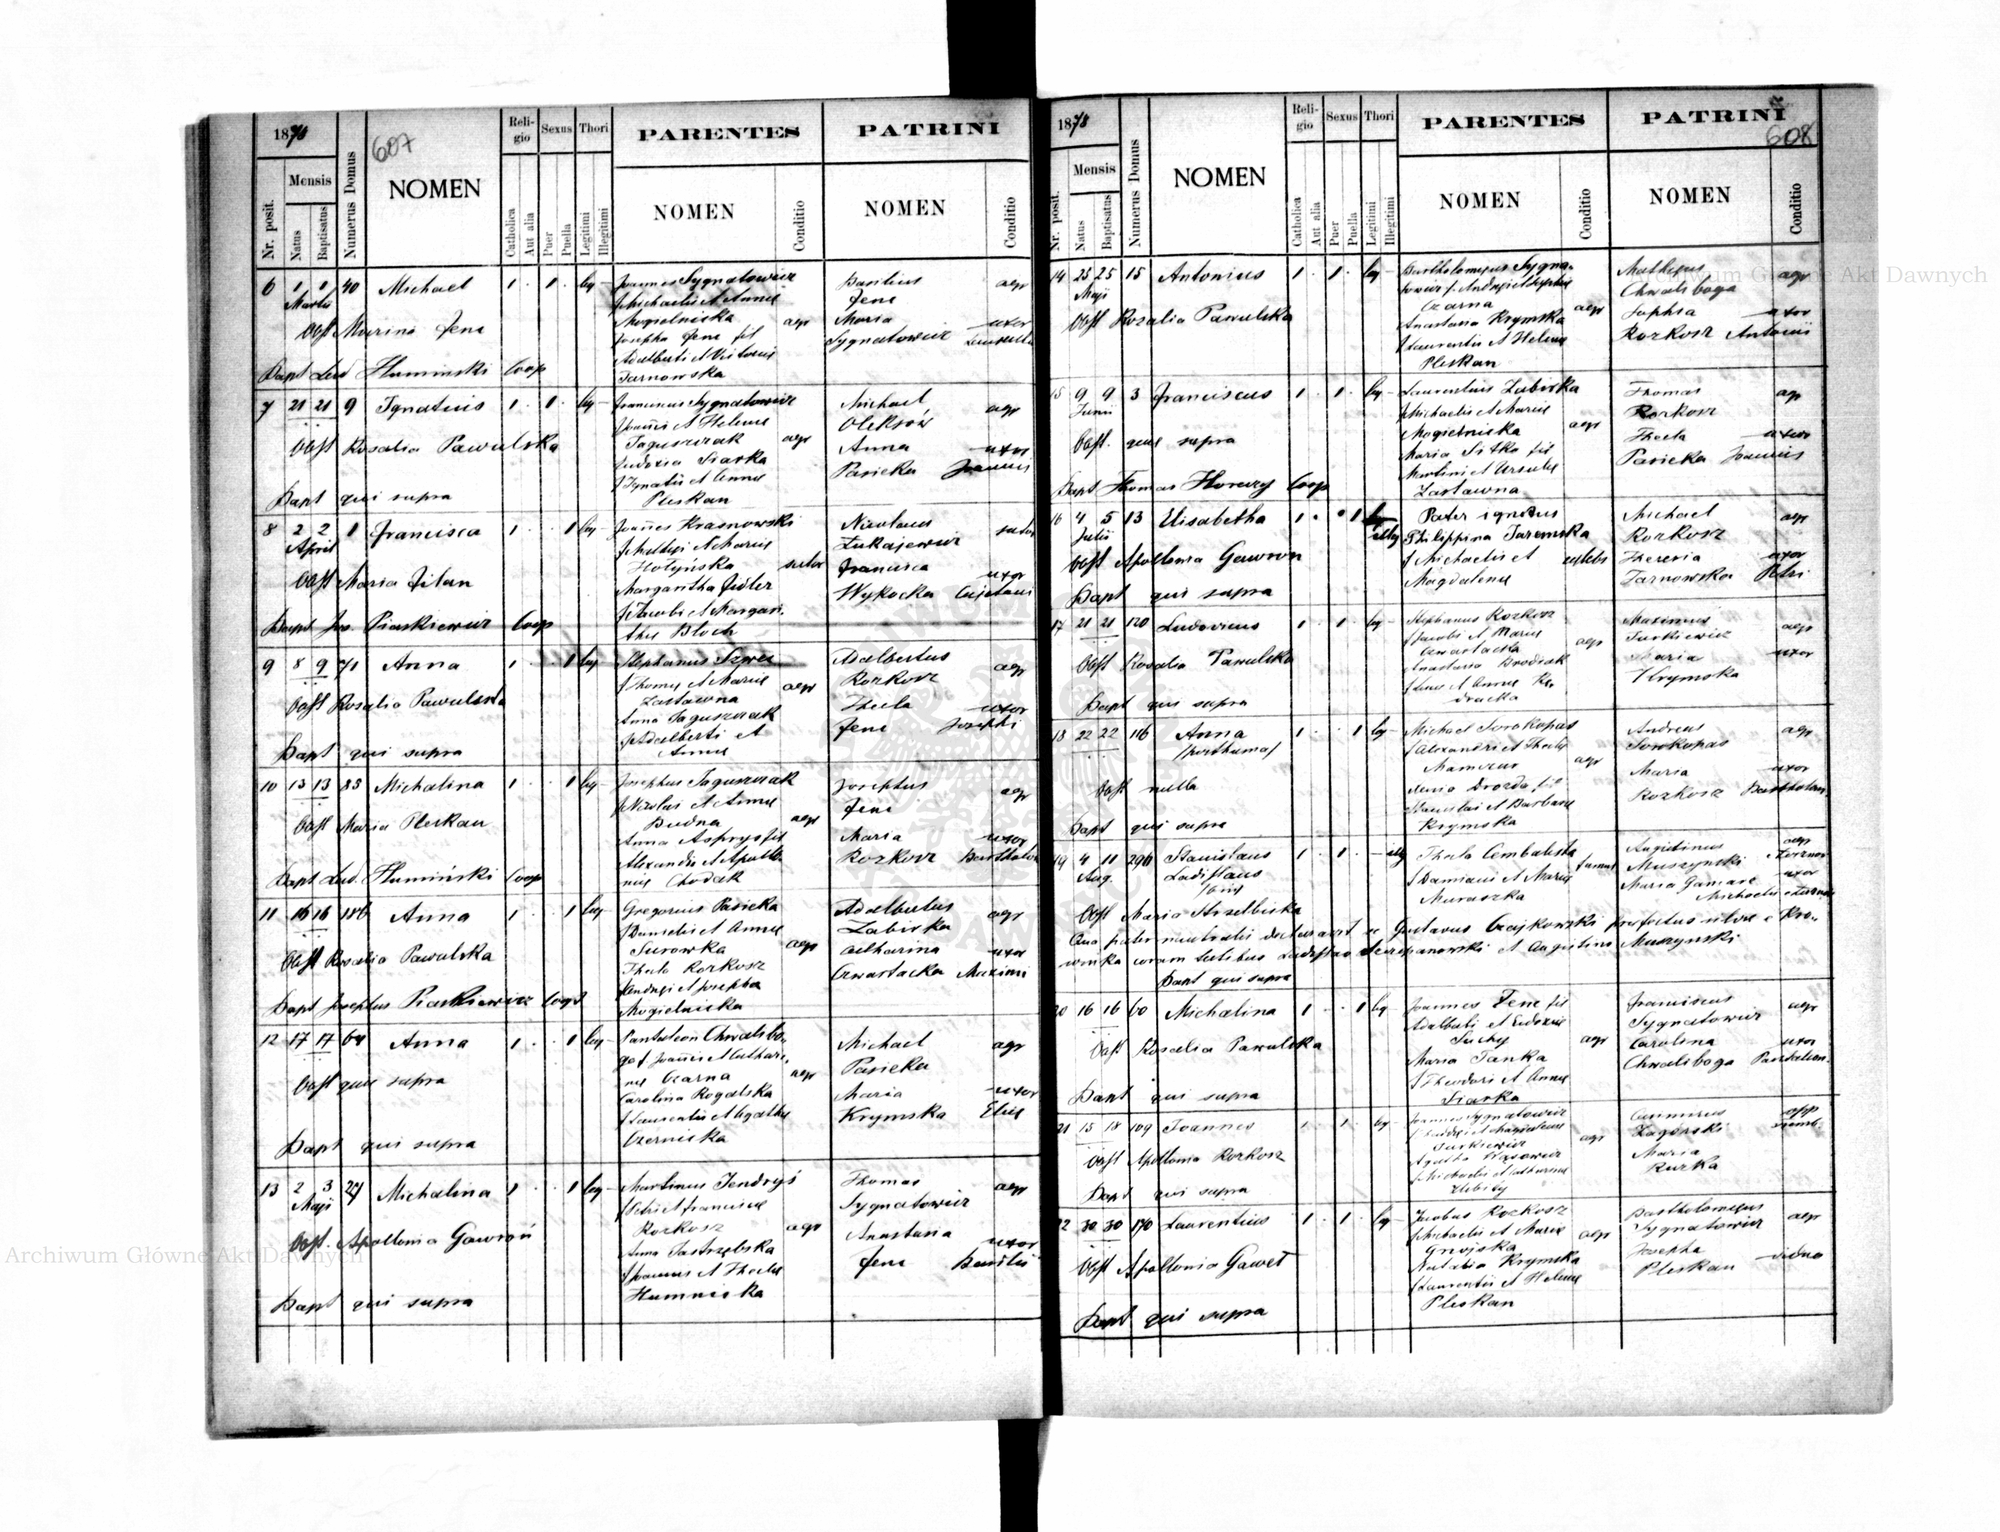 1878
607
Nr. posit.
Mensis
Natus
Baptisatus
Numerus Domus
NOMEN
Religio
Catholica
Aut alia
Sexus
Puer
Puella
Thori
Legitimi
Illegitimi
PARENTES
NOMEN
Conditio
PATRINI
NOMEN
Conditio
6 1 1 40 Michael 1 1 leg
Martii
Obst Marina Jene
Bapt Lud Humiński Coop
Joannes Sygnatowicz
f Michaelis et Annae
Mogielnicka
Josepha Jene fil
Adalberti et Victoriae
Tarnowska
agr
Basilius agr
Jene
Maria uxor
Sygnatowicz
7 21 21 9 Ignatius 1 1 leg
Obst Rosalia Pawulska
Bapt qui supra
Franciscus Sygnatowicz
f Joannis et Helenae
Jaguszczak agr
Eudoxia Siarka
f Ignatii et Annae
Pleskan
Michael agr
Oleksów
Anna uxor
Pasieka Joannis
8 2 2 1 Francisca 1 1 leg
April
Obst Maria Filan
Bapt Jos. Piaskiewicz Coop
Joannes Krasnowski
f Mathei et Mariae
Hołyńska sutor
Margaritha Fidler
f Jacobi et Margari
thae Bloch
Nicolaus sutor
Łukajewicz
Francisca uxor
Wykocka Cajetani
9 8 9 71 Anna 1 1 leg
Obst Rosalia Pawulska
Bapt qui supra
Stephanus Szwec
f Thomae et Mariae
Zastawna agr
Anna Jaguszczak
f Adalberti et
Annae
Adalbertus agr
Rozkosz
Thecla uxor
Jene Josephi
10 13 13 83 Michalina 1 1 leg
Obst Maria Pleskan
Bapt Lud. Humiński Coop
Josephus Jaguszczak
f Nicolai et Annae
Budna agr
Anna fil
Alexandri et Apollo
niae Chodak
Josephus agr
Jene
Maria uxor
Rozkosz Bartholom
11 16 16 186 Anna 1 1 leg
Obst Rosalia Pawulska
Bapt Josephus Piaskiewicz Coop
Gregorius Pasieka
f Danielis et Annae
Surowka agr
Thecla Rozkosz
f Andreji et Josepha
Mogielnicka
Adalbertus agr
Zabirka
Catharina uxor
Czwartacka Maximi
12 17 17 64 Anna 1 1 leg
Obst quae supra
Bapt qui supra
Pantaleon Chwalibo
ga f Joannis et Cathari
nae Czarna agr
Carolina Rogalska
f Laurentii et Agathae
Czernicka
Michael agr
Pasieka
Maria uxor
Krymska Eliae
13 2 3 27 Michalina 1 1 leg
Maji
Obst. Apollonia Gawroń
Bapt qui supra
Martinus Jendryś
f Petri et Franciscae
Rozkosz agr
Anna Jastrzębska
f Joannis et Theclae
Humnicka
Thomas agr
Sygnatowicz
Anastasia uxor
Jene Basilii
1878
608
Nr. posit.
Mensis
Natus
Baptisatus
Numerus Domus
NOMEN
Religio
Catholica
Aut alia
Sexus
Puer
Puella
Thori
Legitimi
Illegitimi
PARENTES
NOMEN
Conditio
PATRINI
NOMEN
Conditio
14 25 25 15 Antonius 1 1 leg
Maji
Obst Rozalia Pawulska
Bartholomeus Sygna
towicz f. Andreji et Sophiae
Czarna agr
Anastasia Krymska
f Laurentii et Helenae
Pleskan
Matheus agr
Chwaliboga
Sophia uxor
Rozkosz Antonii
15 9 9 3 Franciscus 1 1 leg
Junii
Obst. quae supra
Bapt Thomas Horeczy Coop
Laurentius Zabirka
f Michaelis et Mariae
Mogielnicka agr
Maria Sitko fil
Martini et Ursulae
Zastawna
Thomas agr
Rozkosz
Thecla uxor
Pasieka Joannis
16 4 5 13 Elisabetha 1 1 illeg
Julii
Obst Apollonia Gawron
Bapt qui supra
Pater ignotus
Philippina Jaremska
f Michaelis et caelebs
Magdalenae
Michael agr
Rozkosz
Theresia uxor
Tarnowska Petri
17 21 21 120 Ludovicus 1 1 leg
Obst Rosalia Pawulska
Bapt qui supra
Stephanus Rozkosz
f Jacobi et Mariae
Czwartacka agr
Anastasia Brodziak
Maximus agr
Turkiewicz
Maria uxor
Krymska
18 22 22 116 Anna 1 1 leg
/posthuma/
Obst nulla
Bapt qui supra
Michael Sorokopas
f Alexandri et Theclae
agr
Xenia Drozda fil
Stanislai et Barbarae
Krymska
Andreas agr
Sorokopas
Maria uxor
Rozkosz Bartholom.
19 4 11 296 Stanislaus 1 1 illeg
Aug. Ladislaus
Obst Maria Strzelbicka
Thecla Cembalista
f Damiani et Mariae
Muraszka
Augustinus agr
Muszyński
Maria uxor
Michaelis
Qua pater naturalis declaravit se Gustavus Czajkowski praefectus silvae e Kro
winka coram testibus Ladislao Szczepanowski et Augustino Muszyński
Bapt qui supra
20 16 16 60 Michalina 1 1 leg
Obst Rosalia Pawulska
Bapt qui supra
Joannes Jene fil
Adalberti et Eudoxiae
Suchy agr
Maria Janka
f Theodori et Annae
Siarka
Franciscus agr
Sygnatowicz
Carolina uxor
Chwaliboga Pantaleon.
21 15 18 109 Joannes 1 1 leg
Obst Apollonia Rozkosz
Bapt qui supra
Joannes Sygnatowicz
f Andreji et Magdalenae
Turkiewicz agr
Casimirus
Zagórski
Maria
Kurka
22 30 30 170 Laurentius 1 1 leg
Obst Apollonia Gaweł
Bapt qui supra
Jacobus Rozkosz
f Michaelis et Mariae
Gnojska agr
Natalia Krymska
f Laurentii et Helenae
Pleskan
Bartholomeus agr
Sygnatowicz
Josepha
Pleskan vidua
Archiwum Główne Akt Dawnych
Archiwum Główne Akt Dawnych